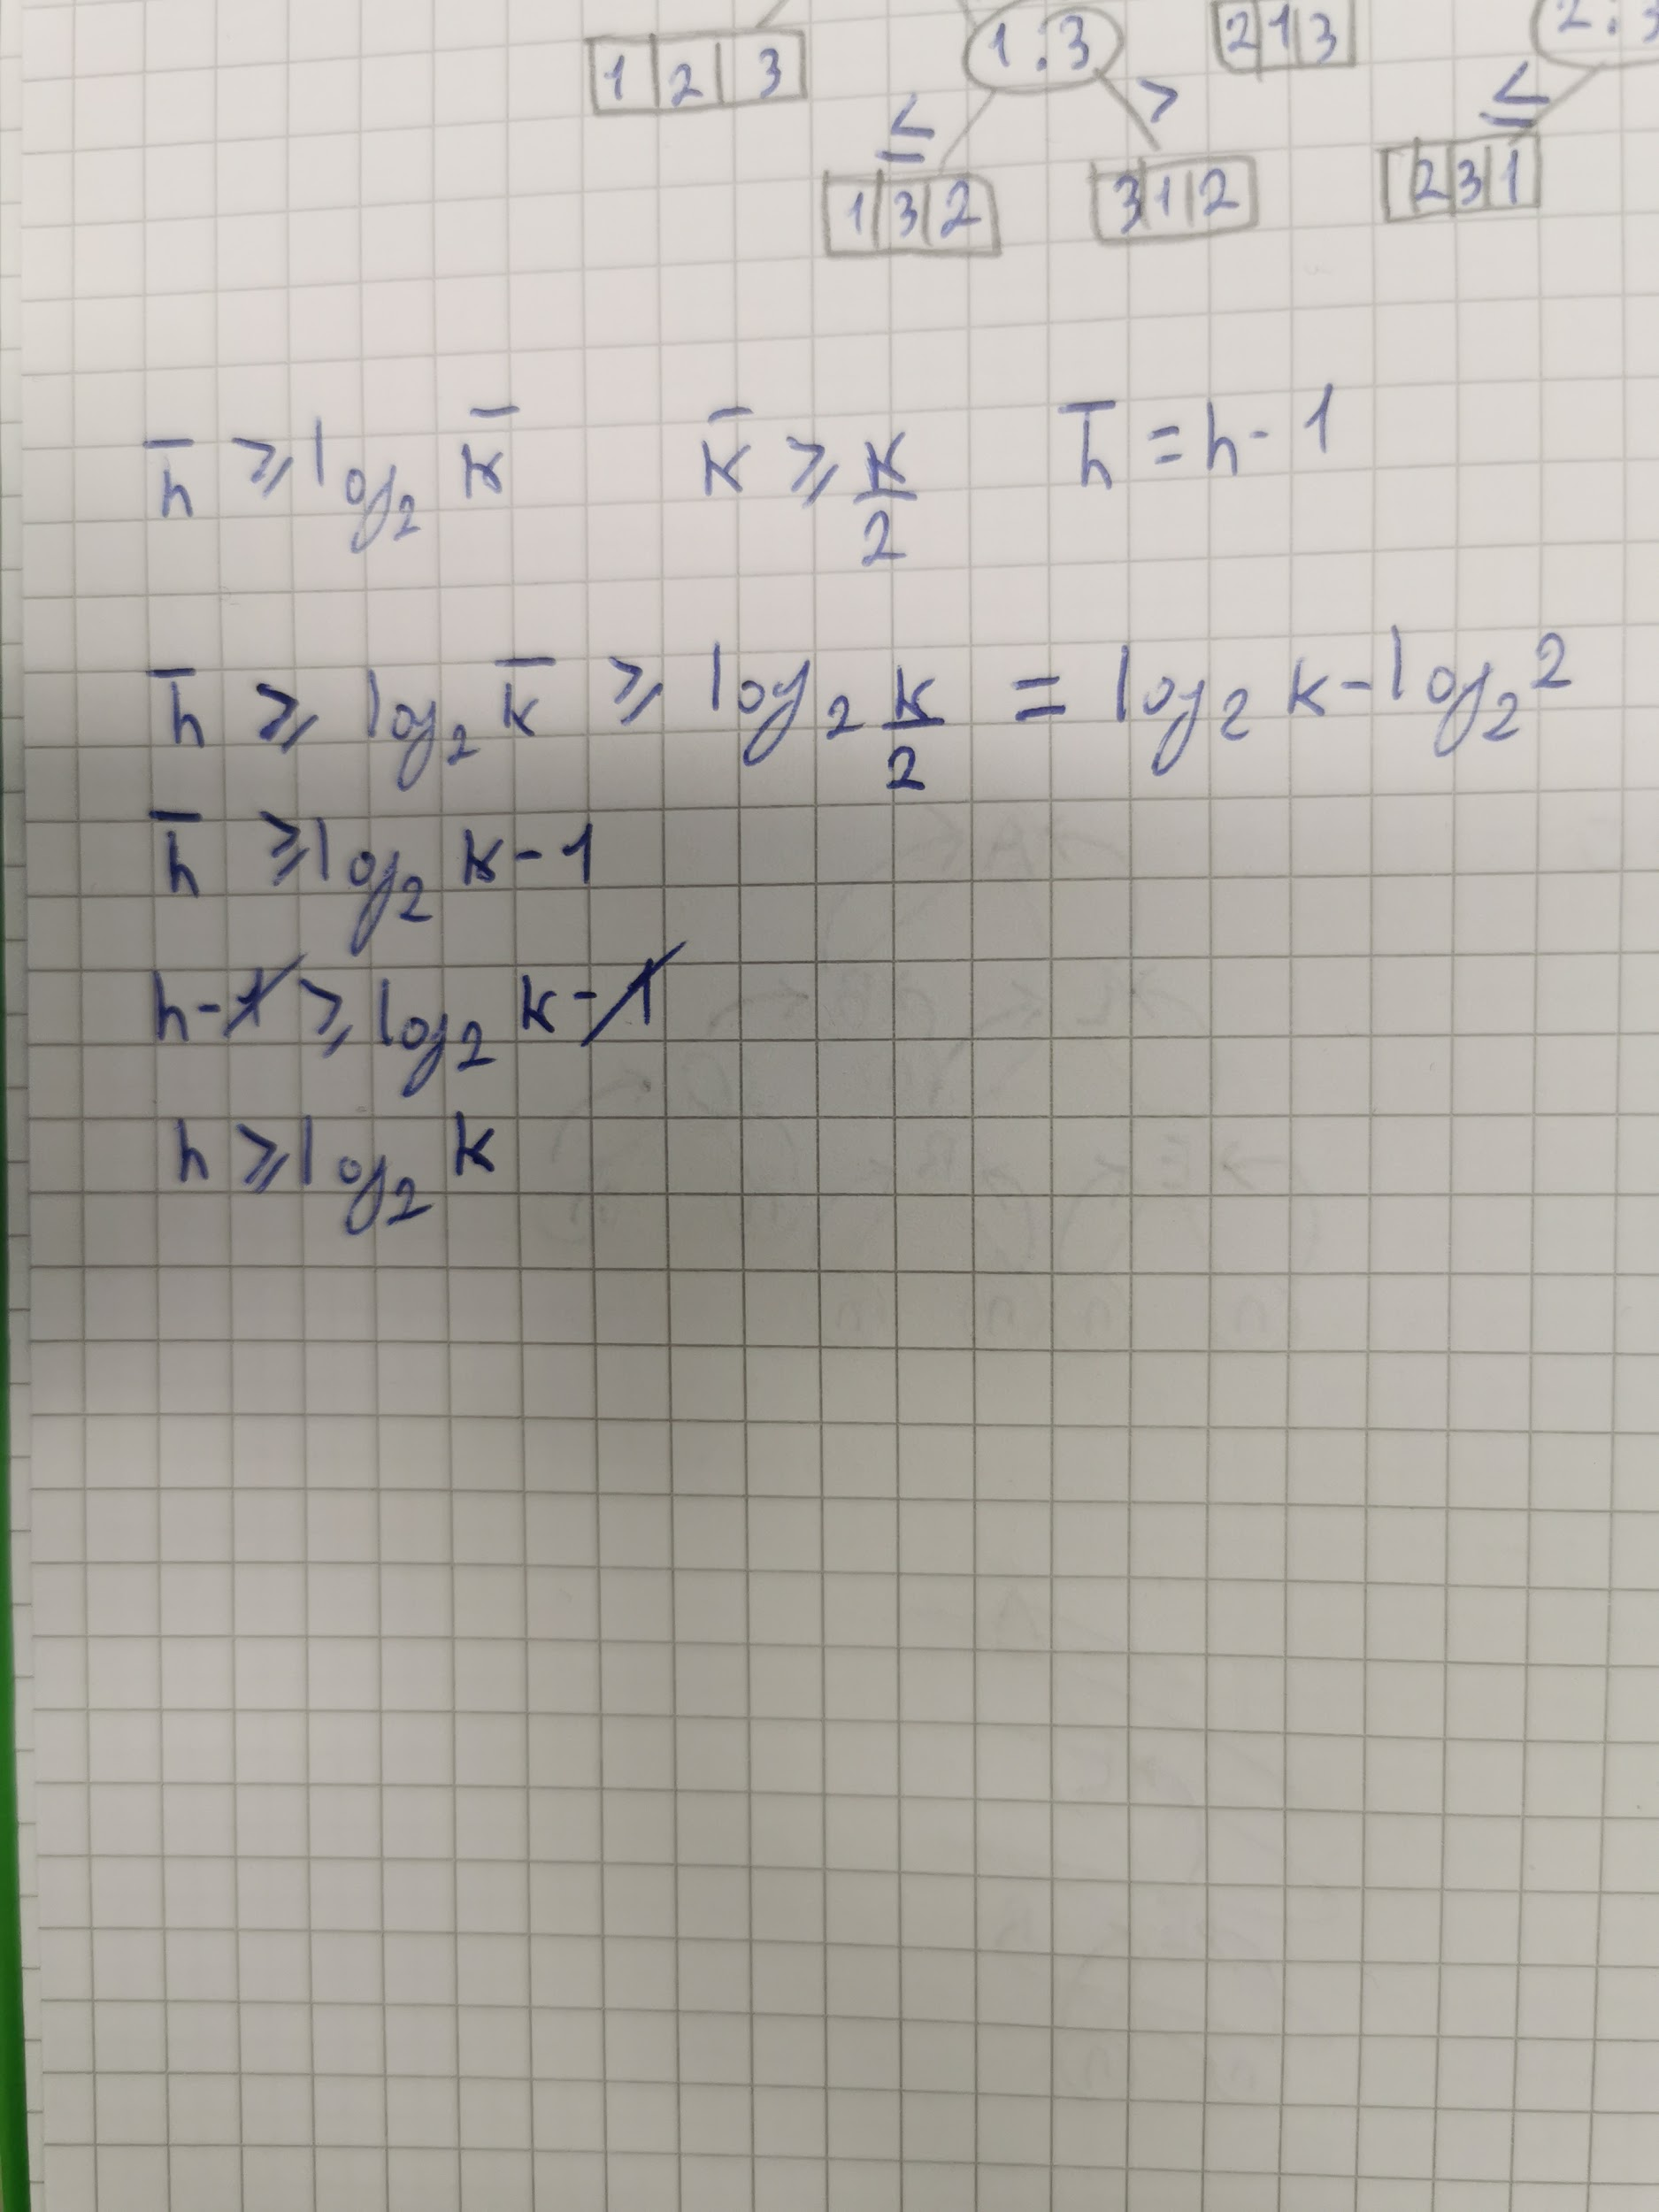 1 2 3 1:3 2 1 3 2:3
≤ > ≤
1 3 2 3 1 2 2 3 1
h̅ ⩾ log₂ k̅ k̅ ⩾ k/2 h̅ = h - 1
h̅ ⩾ log₂ k̅ ⩾ log₂ k/2 = log₂ k - log₂ 2
h̅ ⩾ log₂ k - 1
h - 1 ⩾ log₂ k - 1
h ⩾ log₂ k